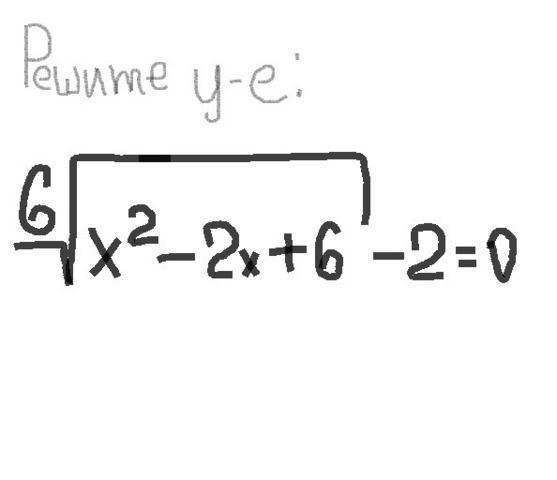 Решите у-е:
⁶√x²-2x+6 -2=0